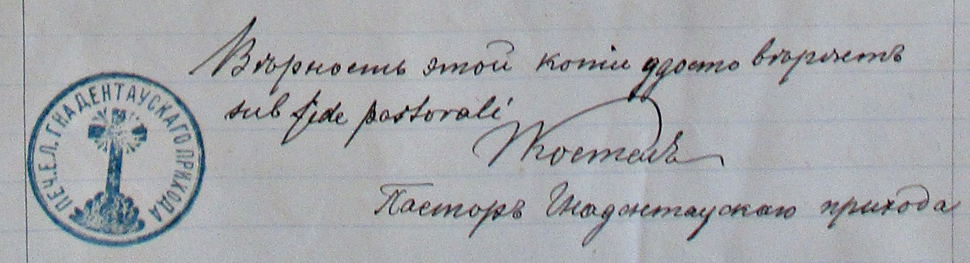 Вѣрность этой копіи удостовѣряетъ
sub fide pastorali
Пасторъ Гнадентаускаго прихода
ПЕЧ. Е. Л. ГНАДЕНТАУСКАГО ПРИХОДА